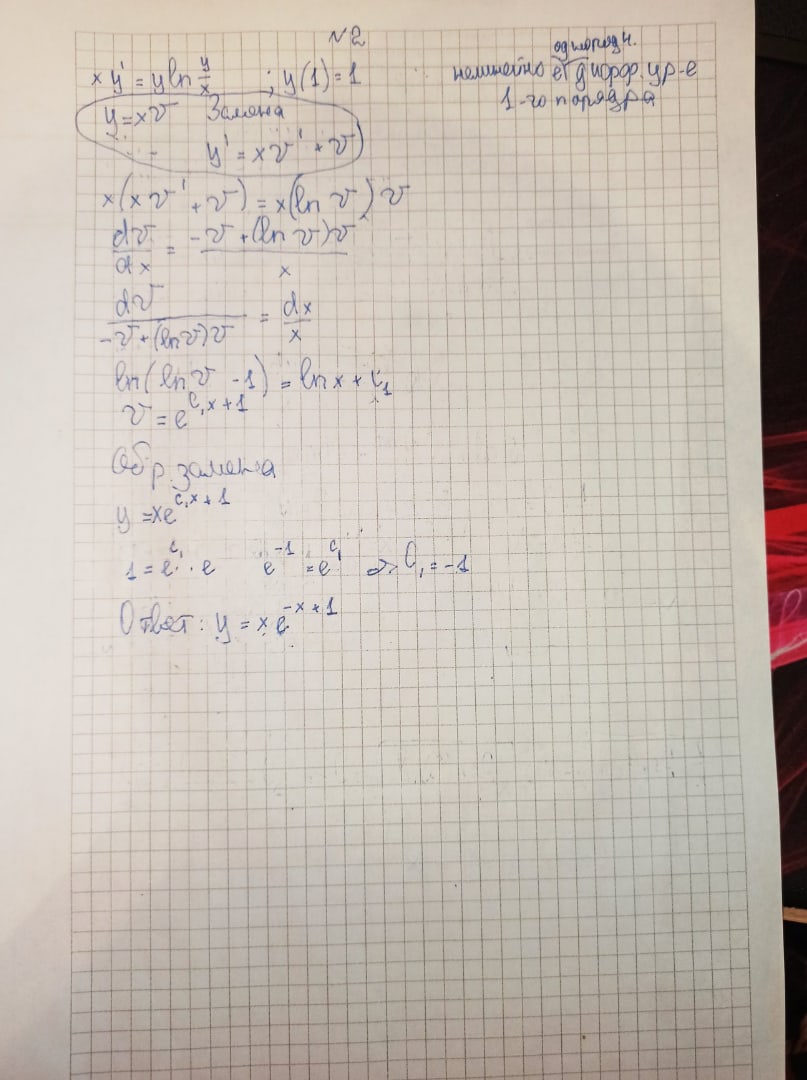 №2
xy' = y ln y/x ; y(1)=1
однородн.
нелинейное дифф. ур-е
1-го порядка
y=xv Замена
y' = xv' + v
x(xv' + v) = x(ln v)v
dv/dx = (-v + (ln v)v)/x
dv/(-v + (ln v)v) = dx/x
ln(ln v - 1) = ln x + C₁
v = e^(C₁x + 1)
Обр. замена
y = xe^(C₁x + 1)
1 = e^(C₁) · e e^(-1) = e^(C₁) => C₁ = -1
Ответ: y = xe^(-x + 1)